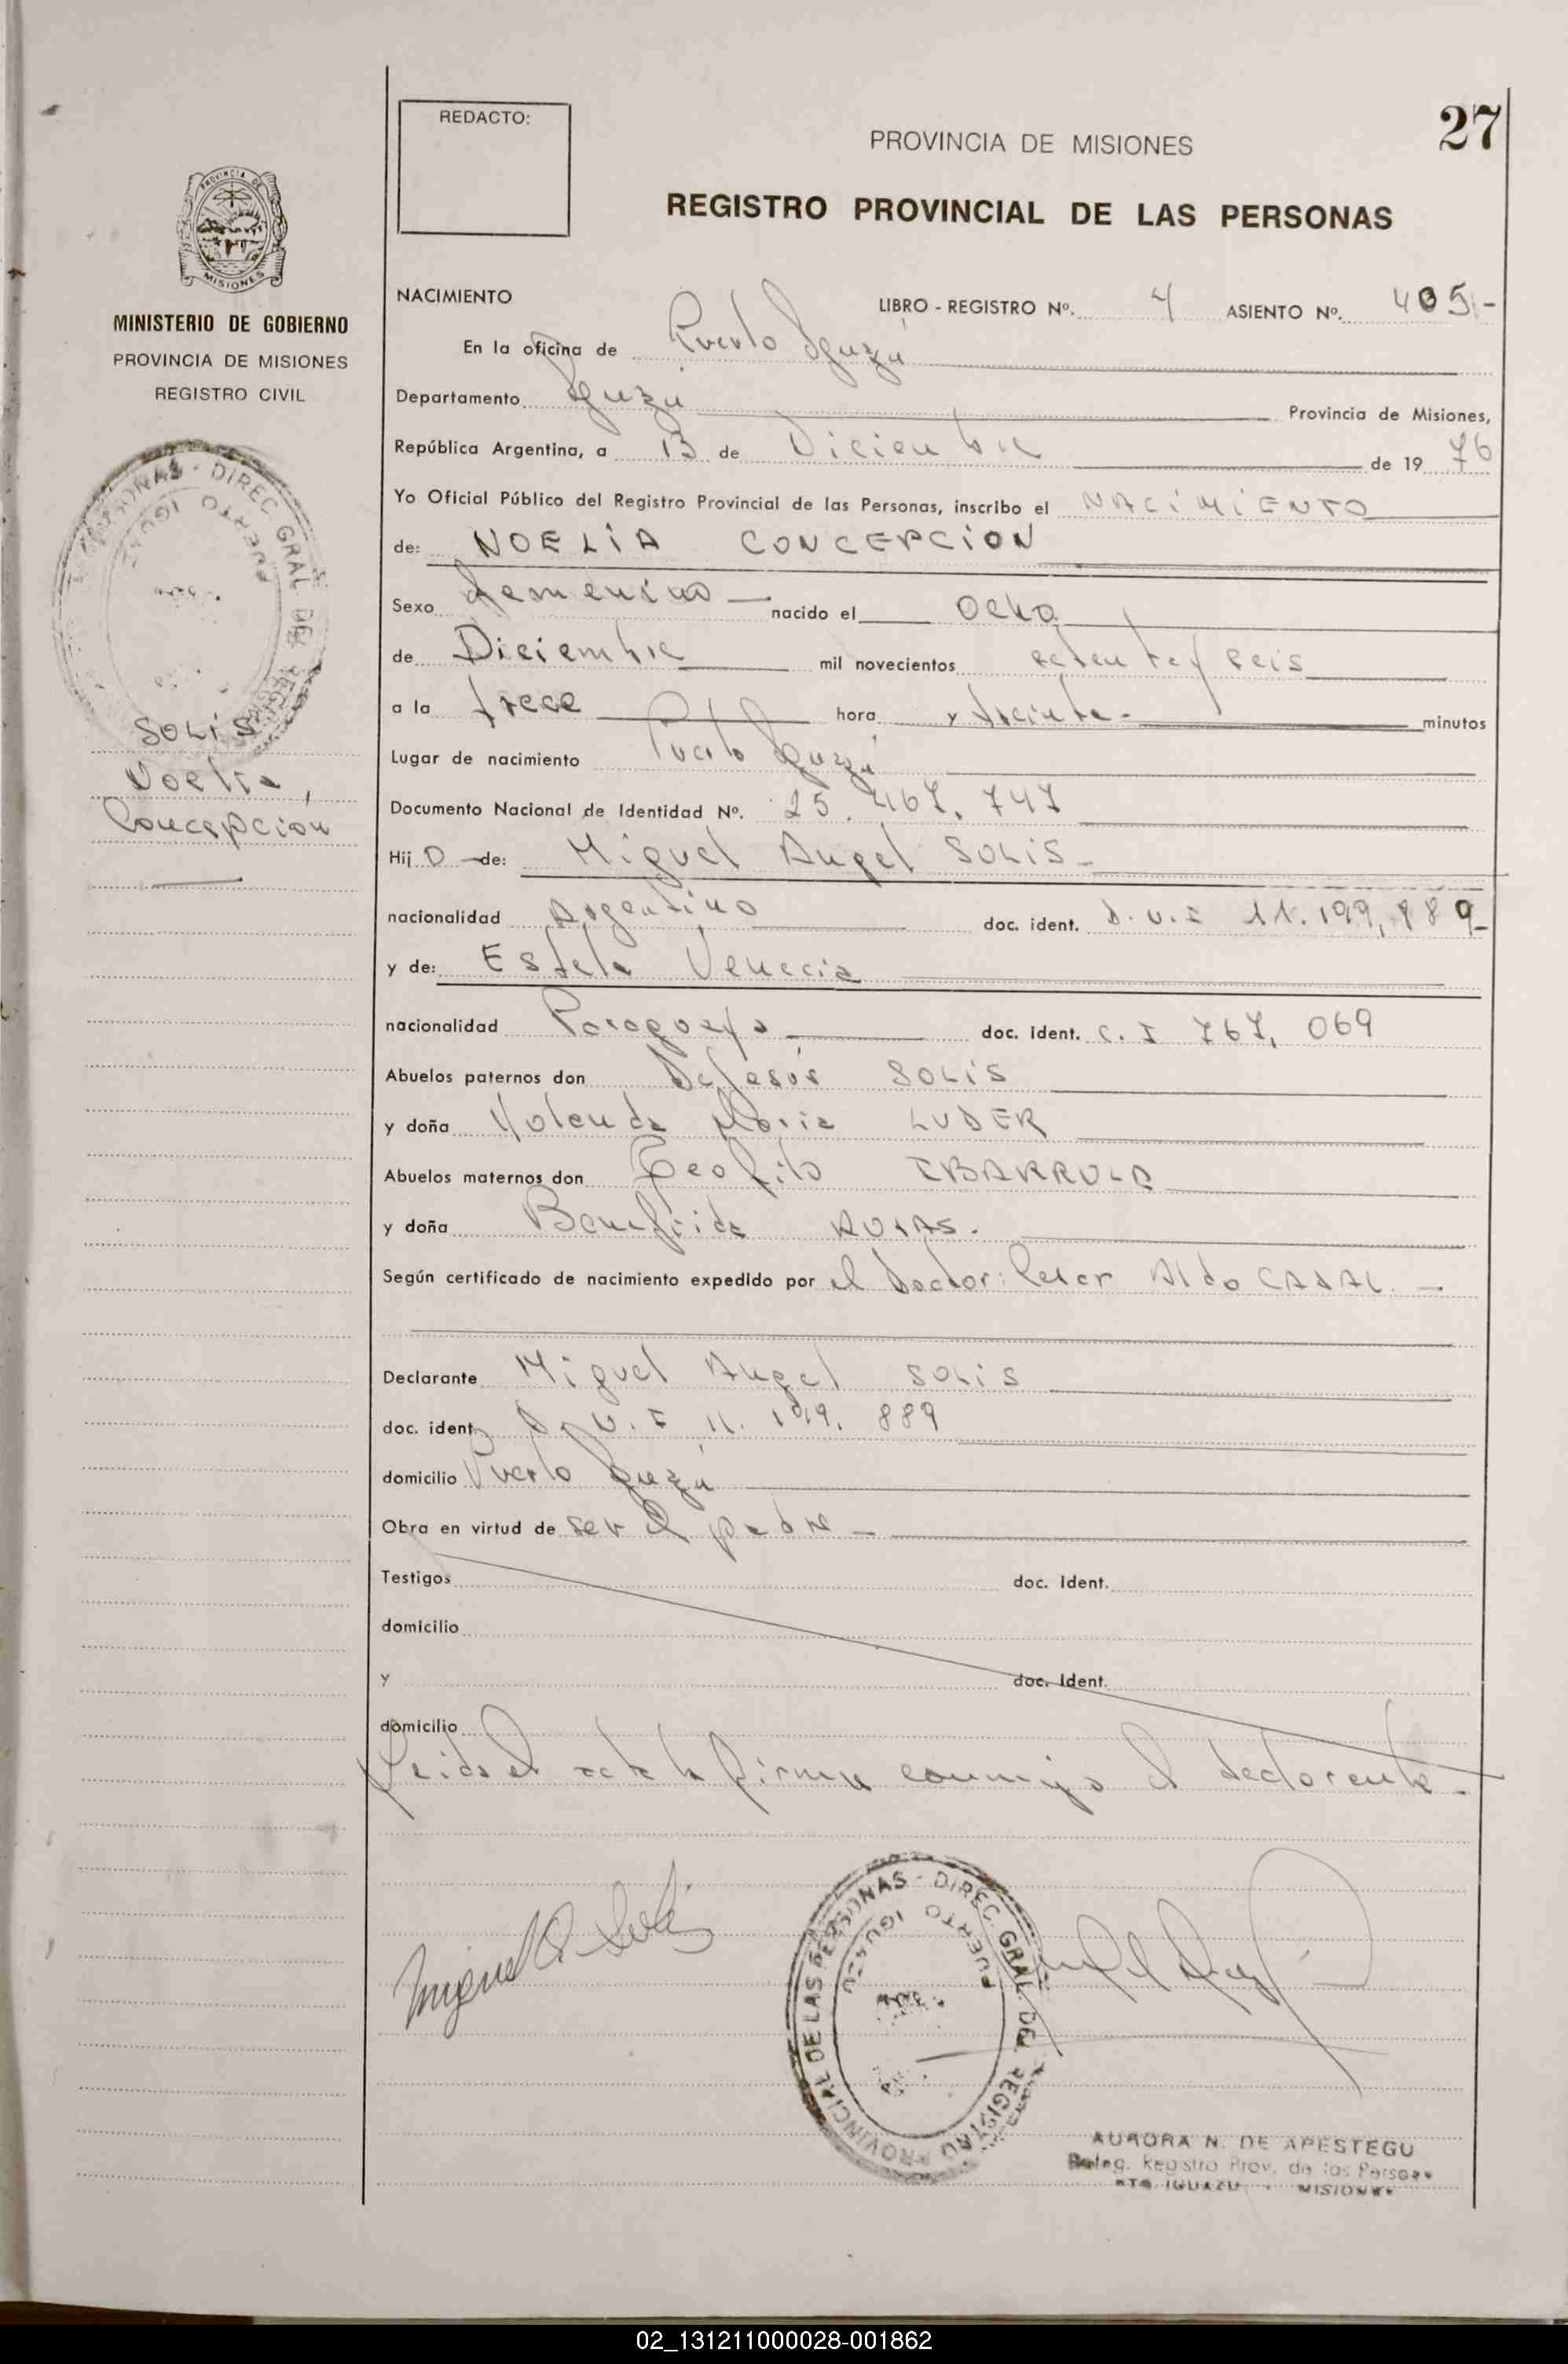 27
REDACTO:
PROVINCIA DE MISIONES
REGISTRO PROVINCIAL DE LAS PERSONAS
PROVINCIA DE
MISIONES
MINISTERIO DE GOBIERNO
PROVINCIA DE MISIONES
REGISTRO CIVIL
PERSONAS - DIREC. GRAL. DEL REGIS
PUERTO IGUAZU
SOLÍS
Noelia,
Concepcion
NACIMIENTO LIBRO - REGISTRO Nº. 4 ASIENTO Nº. 405.-
En la oficina de Puerto Iguazú
Departamento Iguazú Provincia de Misiones,
República Argentina, a 13 de Diciembre de 1976
Yo Oficial Público del Registro Provincial de las Personas, inscribo el NACIMIENTO
de: NOELIA CONCEPCION
Sexo femenino nacido el Ocho
de Diciembre mil novecientos setenta y seis
a la trece hora y treinta - minutos
Lugar de nacimiento Puerto Iguazú
Documento Nacional de Identidad Nº. 25.467.747
Hij o de: Miguel Angel SOLIS -
nacionalidad Argentino doc. ident. D.N.I 11.199,889-
y de: Estela Venecia
nacionalidad Paraguaya doc. ident. C.I 767,069
Abuelos paternos don DeJesús SOLIS
y doña Yolanda Maria LUDER
Abuelos maternos don Teofilo IBARROLA
y doña Benefrida ROJAS.
Según certificado de nacimiento expedido por el Doctor: Aldo CADAL. -
Declarante Miguel Angel SOLIS
doc. ident D.N.I 11.199.889
domicilio Puerto Iguazú
Obra en virtud de ser el padre -
Testigos doc. ident.
domicilio
y doc. Ident.
domicilio
Leida el acta la firma conmigo el declarante -
Miguel A. Solís
PROVINCIAL DE LAS PERSONAS - DIREC. GRAL. DEL REGISTRO
PUERTO IGUAZU
AURORA N. DE APESTEGU
Deleg. Registro Prov. de las Personas
PTO. IGUAZU - MISIONES
02_131211000028-001862